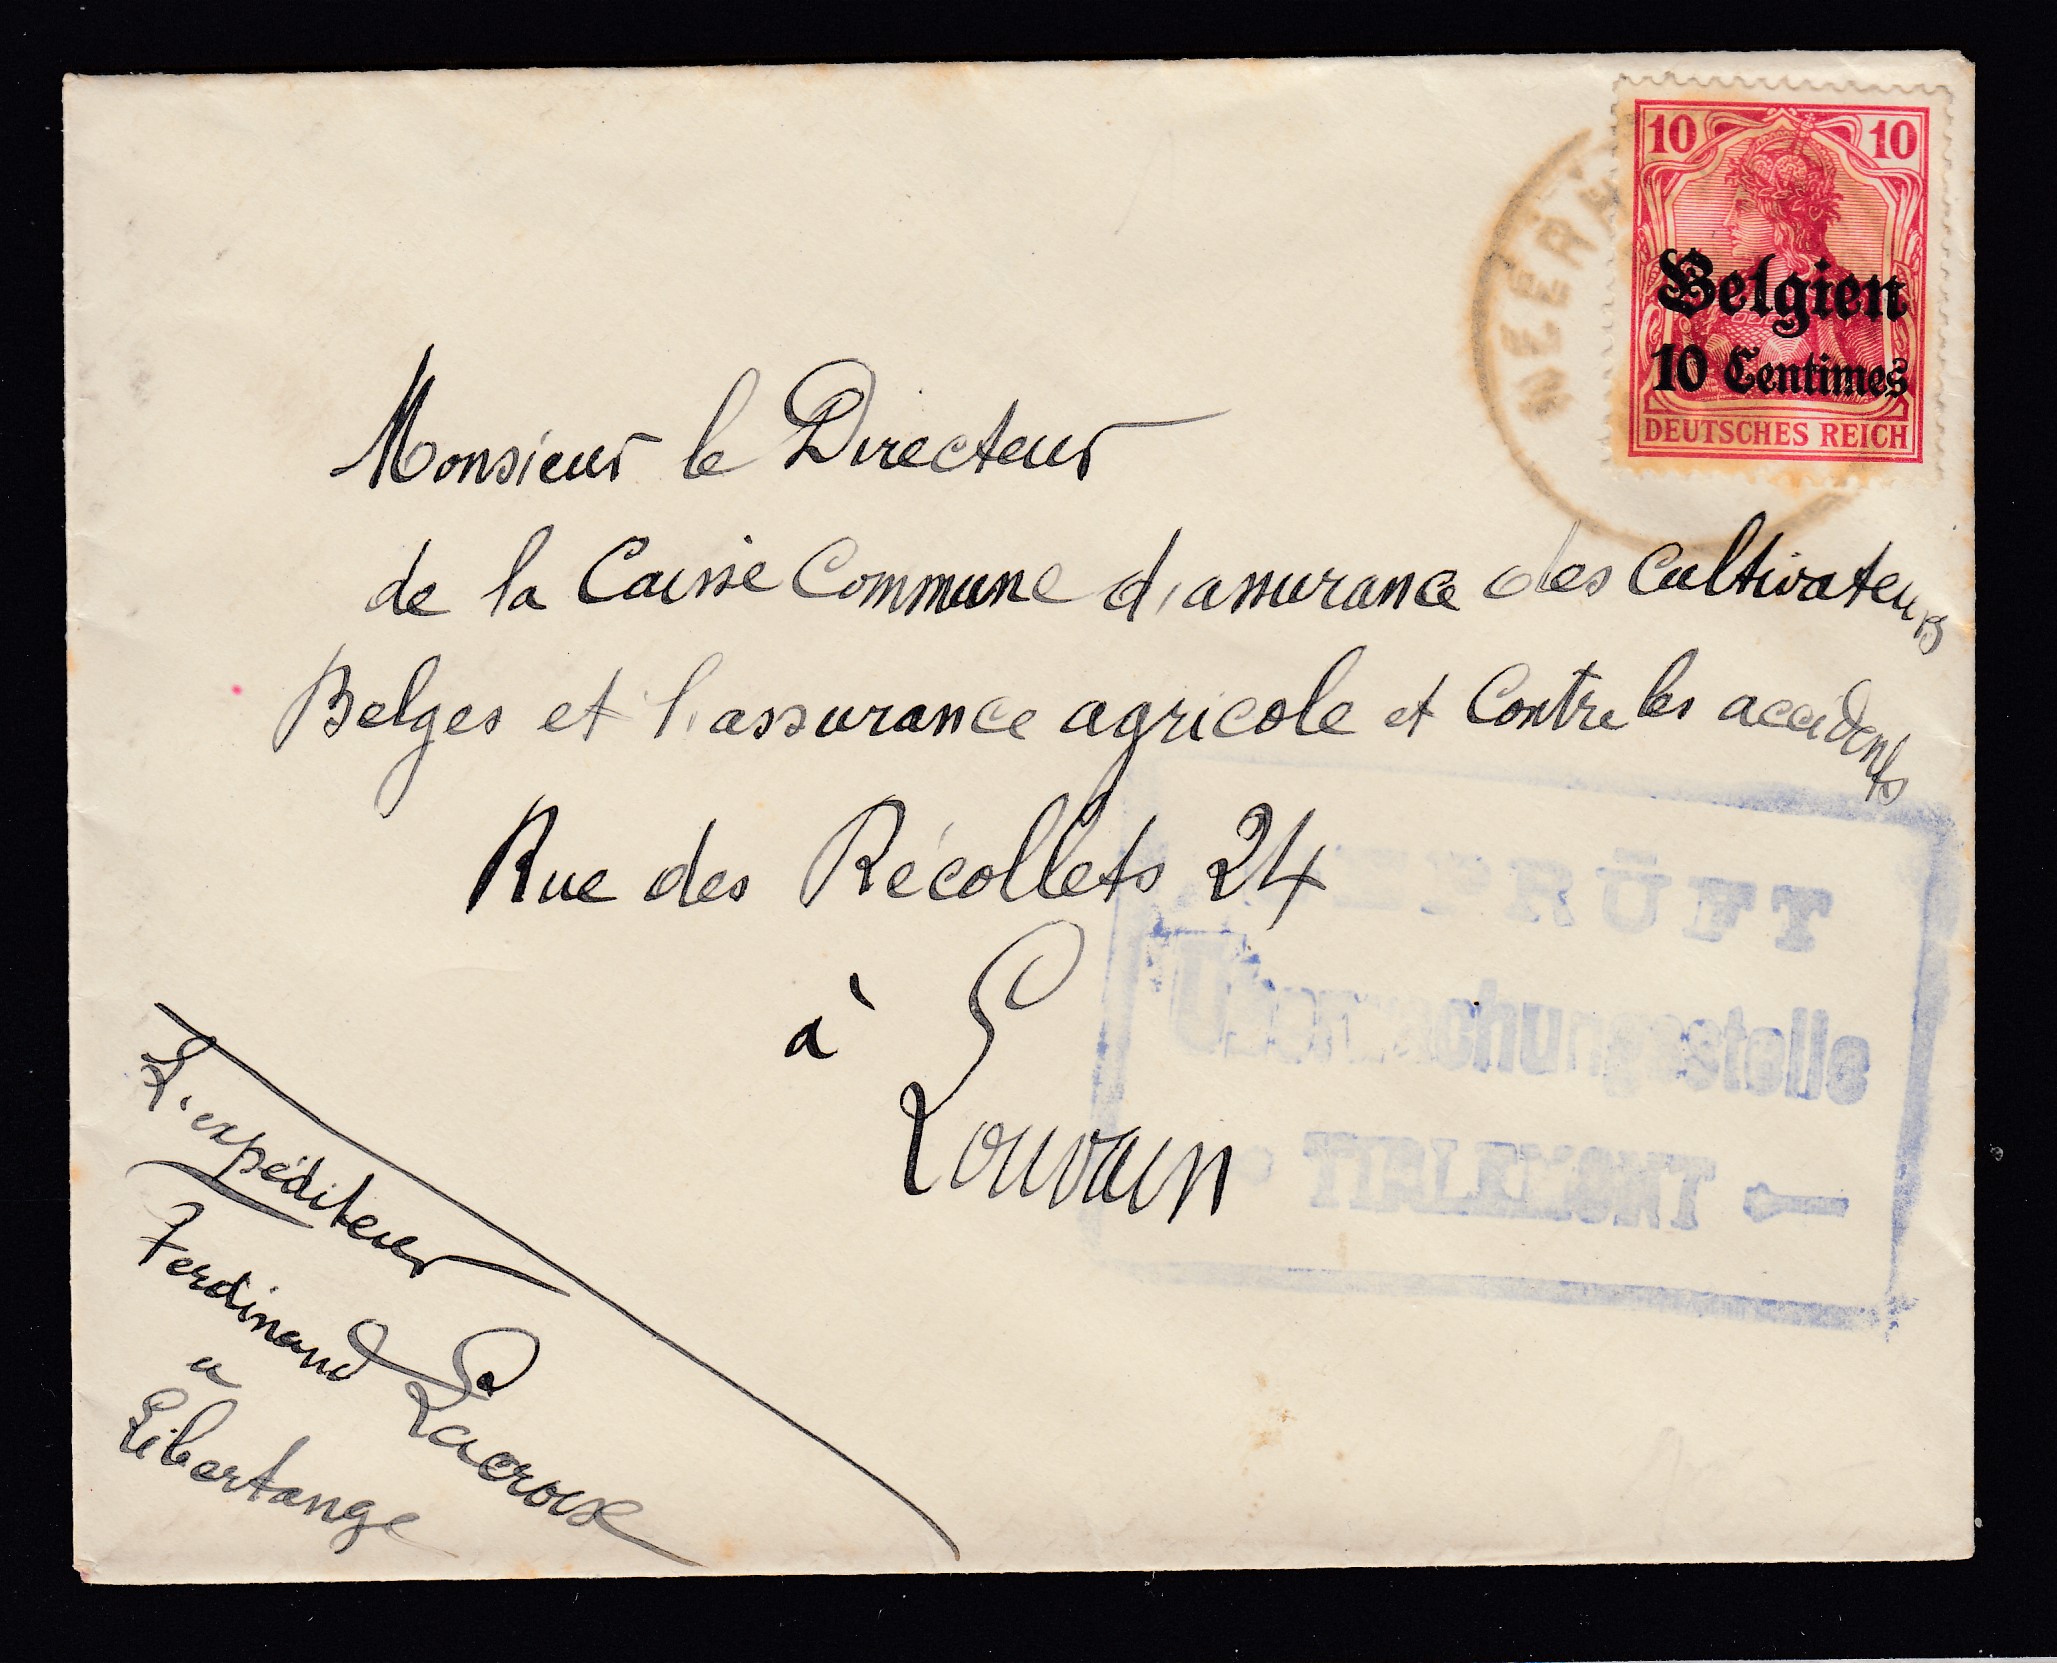 10 10
Belgien
10 Centimes
DEUTSCHES REICH
Monsieur le Directeur
de la Caisse Commune d'assurance des Cultivateurs
Belges et l'assurance agricole et Contre les accidents
Rue des Récollets 24
à
Louvain
GEPRÜFT
Überwachungsstelle
TIRLEMONT
L'expéditeur
Ferdinand Lacroix
a
Libertange